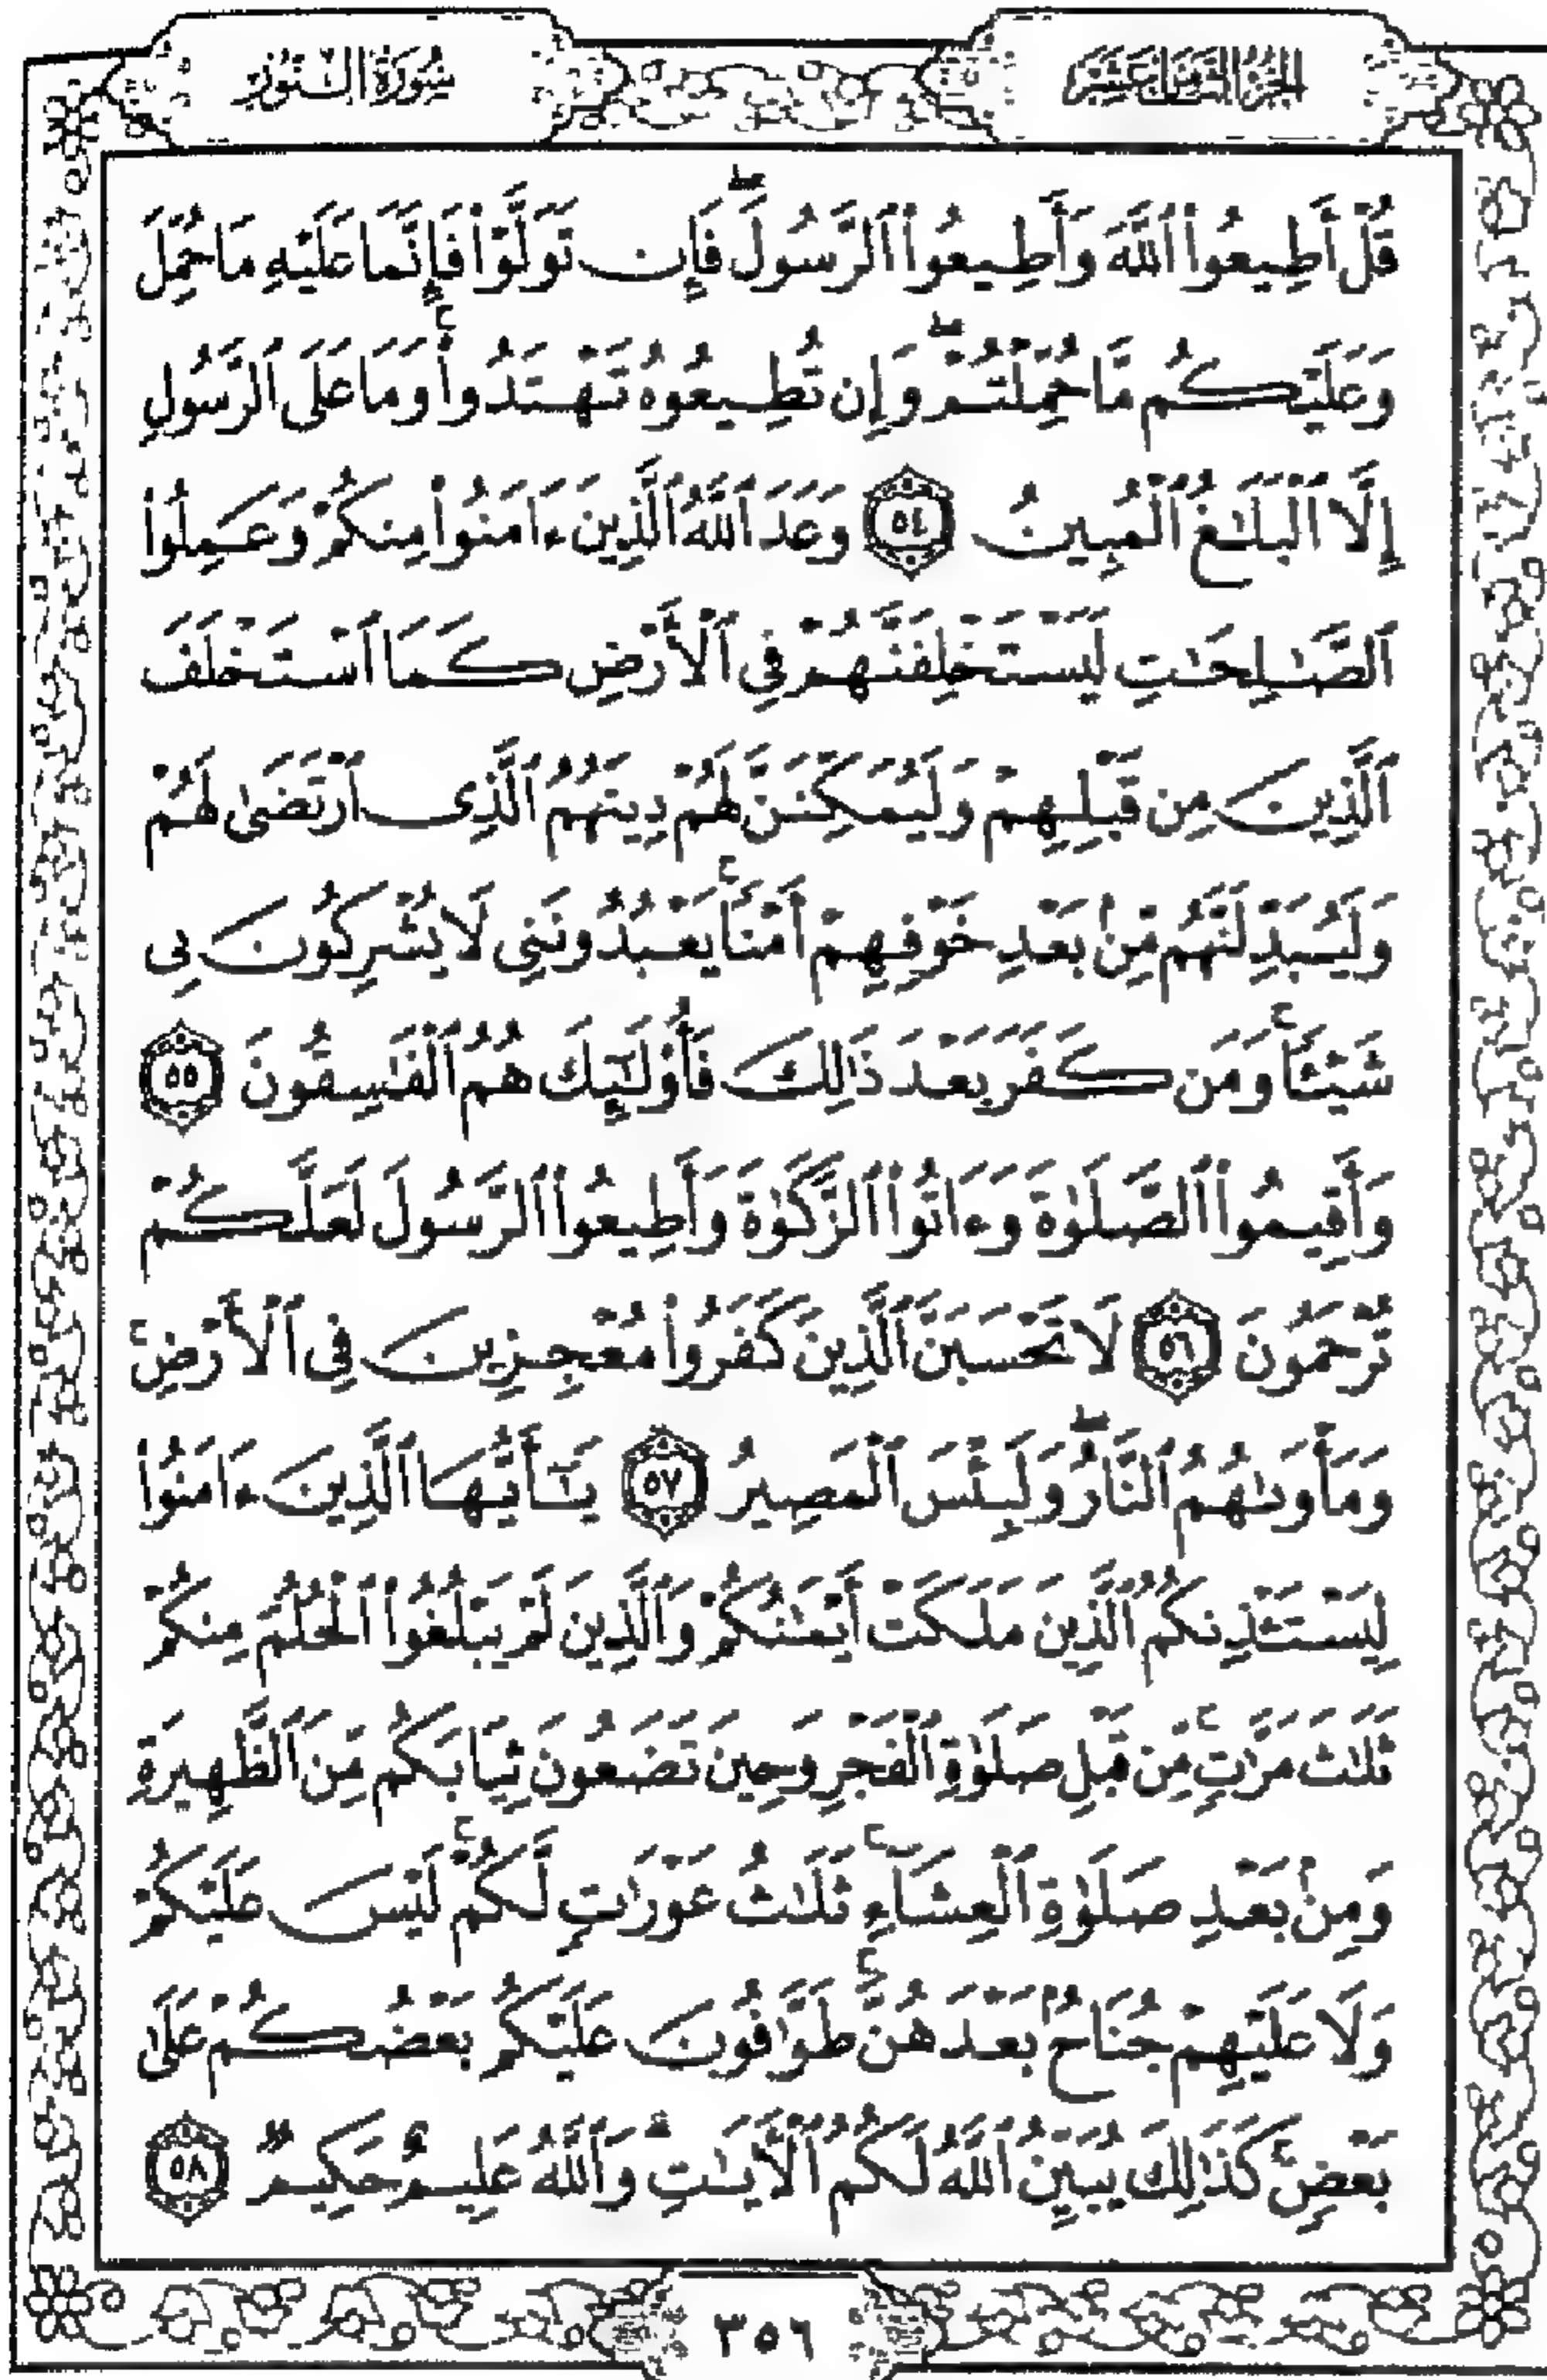 الجزء الثامن عشر
سورة النور
قُلْ أَطِيعُوا۟ ٱللَّهَ وَأَطِيعُوا۟ ٱلرَّسُولَ ۖ فَإِن تَوَلَّوْا۟ فَإِنَّمَا عَلَيْهِ مَا حُمِّلَ
وَعَلَيْكُم مَّا حُمِّلْتُمْ ۖ وَإِن تُطِيعُوهُ تَهْتَدُوا۟ ۚ وَمَا عَلَى ٱلرَّسُولِ
إِلَّا ٱلْبَلَٰغُ ٱلْمُبِينُ ٥٤ وَعَدَ ٱللَّهُ ٱلَّذِينَ ءَامَنُوا۟ مِنكُمْ وَعَمِلُوا۟
ٱلصَّٰلِحَٰتِ لَيَسْتَخْلِفَنَّهُمْ فِى ٱلْأَرْضِ كَمَا ٱسْتَخْلَفَ
ٱلَّذِينَ مِن قَبْلِهِمْ وَلَيُمَكِّنَنَّ لَهُمْ دِينَهُمُ ٱلَّذِى ٱرْتَضَىٰ لَهُمْ
وَلَيُبَدِّلَنَّهُم مِّنۢ بَعْدِ خَوْفِهِمْ أَمْنًا ۚ يَعْبُدُونَنِى لَا يُشْرِكُونَ بِى
شَيْـًٔا ۚ وَمَن كَفَرَ بَعْدَ ذَٰلِكَ فَأُو۟لَٰٓئِكَ هُمُ ٱلْفَٰسِقُونَ ٥٥
وَأَقِيمُوا۟ ٱلصَّلَوٰةَ وَءَاتُوا۟ ٱلزَّكَوٰةَ وَأَطِيعُوا۟ ٱلرَّسُولَ لَعَلَّكُمْ
تُرْحَمُونَ ٥٦ لَا تَحْسَبَنَّ ٱلَّذِينَ كَفَرُوا۟ مُعْجِزِينَ فِى ٱلْأَرْضِ ۚ
وَمَأْوَىٰهُمُ ٱلنَّارُ ۖ وَلَبِئْسَ ٱلْمَصِيرُ ٥٧ يَٰٓأَيُّهَا ٱلَّذِينَ ءَامَنُوا۟
لِيَسْتَـْٔذِنكُمُ ٱلَّذِينَ مَلَكَتْ أَيْمَٰنُكُمْ وَٱلَّذِينَ لَمْ يَبْلُغُوا۟ ٱلْحُلُمَ مِنكُمْ
ثَلَٰثَ مَرَّٰتٍ ۚ مِّن قَبْلِ صَلَوٰةِ ٱلْفَجْرِ وَحِينَ تَضَعُونَ ثِيَابَكُم مِّنَ ٱلظَّهِيرَةِ
وَمِنۢ بَعْدِ صَلَوٰةِ ٱلْعِشَآءِ ۚ ثَلَٰثُ عَوْرَٰتٍ لَّكُمْ ۚ لَيْسَ عَلَيْكُمْ
وَلَا عَلَيْهِمْ جُنَاحٌۢ بَعْدَهُنَّ ۚ طَوَّٰفُونَ عَلَيْكُم بَعْضُكُمْ عَلَىٰ
بَعْضٍ ۚ كَذَٰلِكَ يُبَيِّنُ ٱللَّهُ لَكُمُ ٱلْـَٔايَٰتِ ۗ وَٱللَّهُ عَلِيمٌ حَكِيمٌ ٥٨
٣٥٦